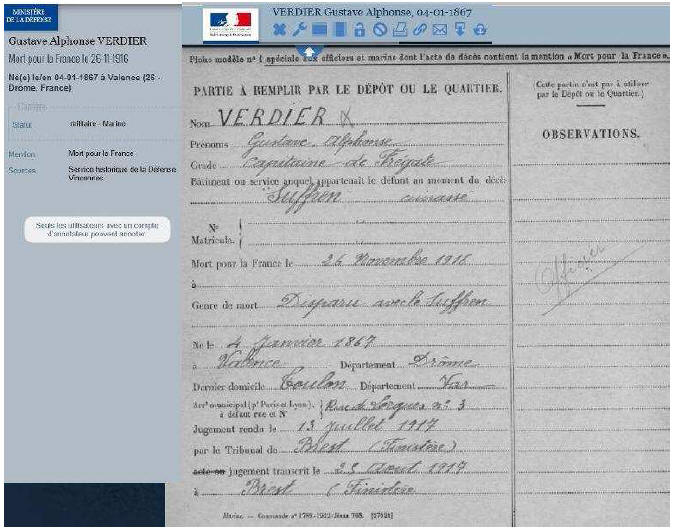 MINISTÈRE
DE LA DÉFENSE
Gustave Alphonse VERDIER
Mort pour la France le 26-11-1916
Né(e) le/en 04-01-1867 à Valence (26 -
Drôme, France)
Carrière
Statut militaire - Marine
Mention Mort pour la France
Sources Service historique de la Défense
Vincennes
Seuls les utilisateurs avec un compte
d'annotateur peuvent annoter
VERDIER Gustave Alphonse, 04-01-1867
Fiche modèle n° 1 spéciale aux officiers et marins dont l'acte de décès contient la mention « Mort pour la France ».
PARTIE À REMPLIR PAR LE DÉPÔT OU LE QUARTIER.
Nom VERDIER
Prénoms Gustave Alphonse
Grade Capitaine de Frégate
Bâtiment ou service auquel appartenait le défunt au moment du décès
"Suffren" cuirassé
N°
Matricule.
Mort pour la France le 26 Novembre 1916
à
Genre de mort Disparu avec le Suffren
Né le 4 Janvier 1867
à Valence Département Drôme
Dernier domicile Toulon Département Var
Arrt municipal (pr Paris et Lyon), à défaut rue et N° Rue de Lorgues n° 3
Jugement rendu le 13 juillet 1917
par le Tribunal de Brest (Finistère)
acte ou jugement transcrit le 23 Août 1917
à Brest (Finistère
Marine. — Commande n° 1789-1922-Jieux 708. [27521]
(Cette partie n'est pas à utiliser
par le Dépôt ou le Quartier.)
OBSERVATIONS.
Officier